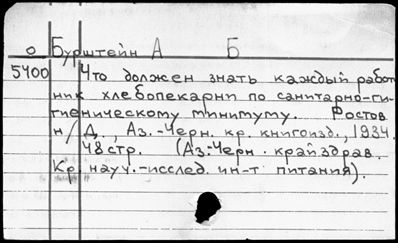 о Бурштейн А Б
5400 Что должен знать каждый работ
ник хлебопекарни по санитарно-ги-
гиеническому минимуму. Ростов
н/Д., Аз.-Черн. кр. книгоизд., 1934.
48 стр. (Аз.-Черн. крайздрав.
Кр. науч.-исслед. ин-т питания).